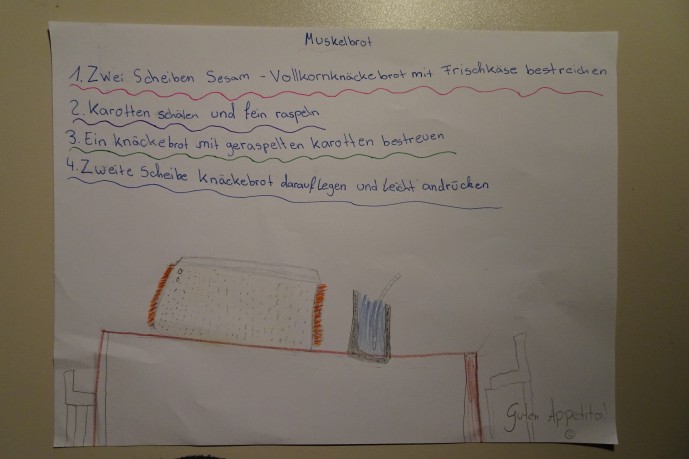 Muskelbrot
1. Zwei Scheiben Sesam - Vollkornknäckebrot mit Frischkäse bestreichen
2. Karotten schälen und fein raspeln
3. Ein Knäckebrot mit geraspelten Karotten bestreuen
4. Zweite Scheibe Knäckebrot darauflegen und leicht andrücken
Guten Appetito!